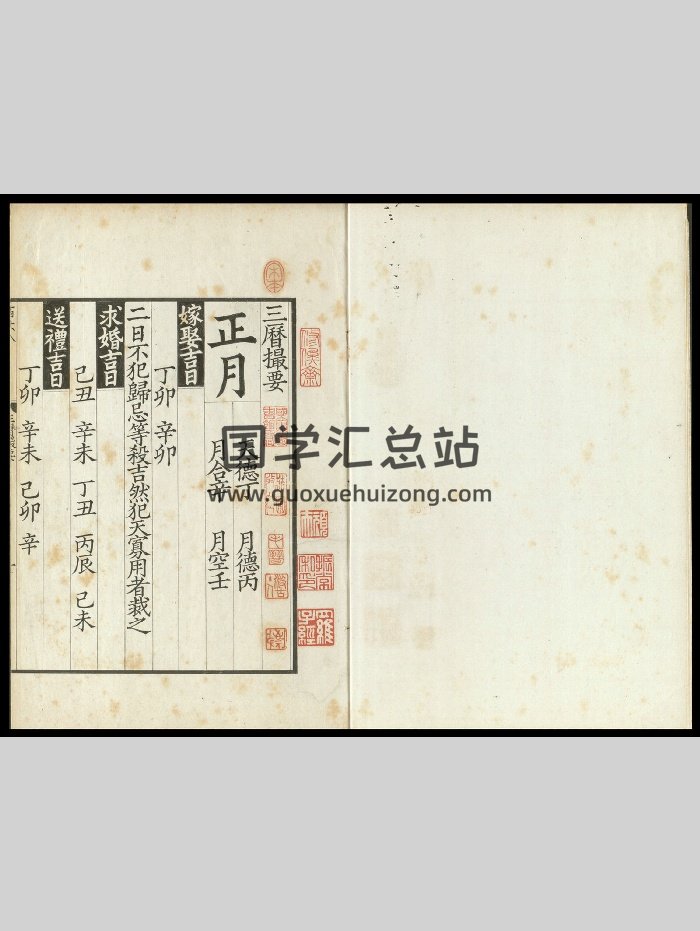 三曆撮要
正月
天德丁 月德丙
月合辛 月空壬
嫁娶吉日
丁卯 辛卯
二日不犯歸忌等殺吉然犯天寡用者裁之
求婚吉日
己丑 辛未 丁丑 丙辰 己未
送禮吉日
丁卯 辛未 己卯 辛
国学汇总站
www.guoxuehuizong.com
宋本